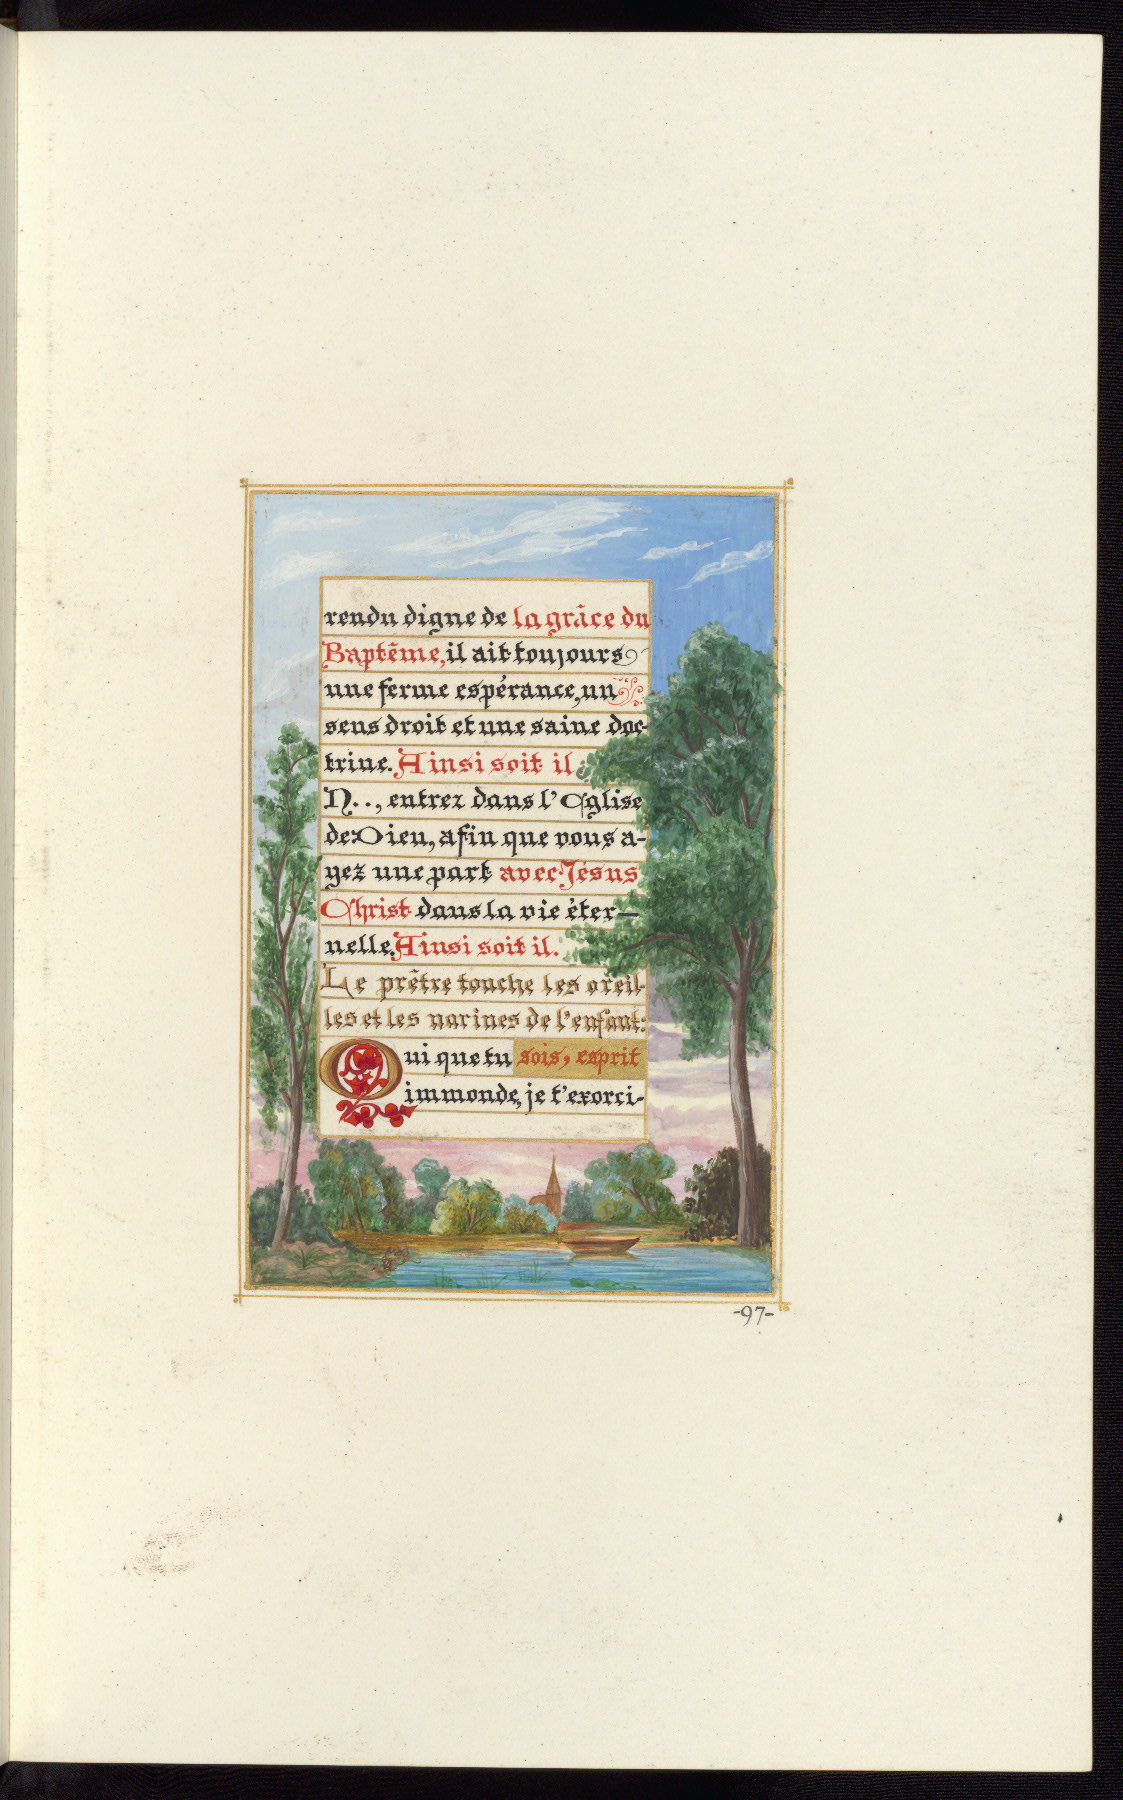 rendu digne de la grâce du
Baptême, il ait toujours
une ferme espérance, un
sens droit et une saine doc-
trine. Ainsi soit il
N.., entrez dans l'Eglise
de Dieu, afin que vous a-
yez une part avec Jésus
Christ dans la vie éter-
nelle. Ainsi soit il.
Le prêtre touche les oreil-
les et les narines de l'enfant:
Qui que tu sois, esprit
immonde, je t'exorci-
-97-